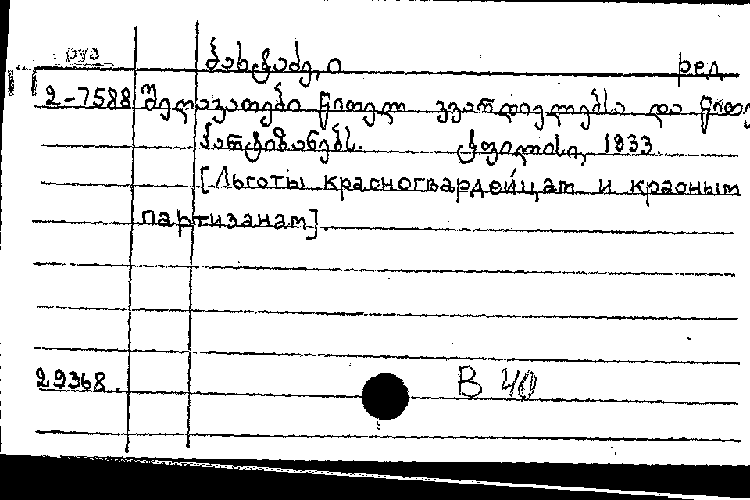 груз
ბახტაძე, ი ред
2-7588 შეღავათები წითელ გვარდიელებსა და წითე
პარტიზანებს. ტფილისი, 1933.
[Льготы красногвардейцам и красным
партизанам].
29368.
В 40